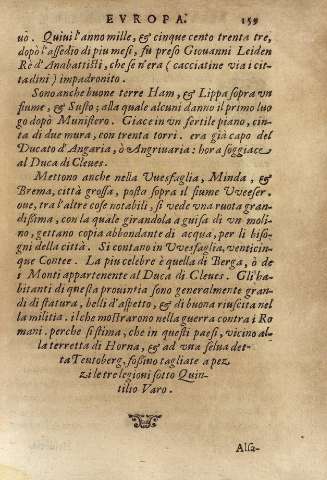 EVROPA. 159
uò. Quiui l'anno mille, & cinque cento trenta tre,
dopò l'assedio di piu mesi, fu preso Giouanni Leiden
Rè d'Anabattisti, che se n'era (cacciatine via i cit-
tadini) impadronito.
Sono anche buone terre Ham, & Lippa sopra vn
fiume, & Susto: alla quale alcuni danno il primo luo
go dopò Munistero. Giace in vn fertile piano, cin-
ta di due mura, con trenta torri. era già capo del
Ducato d'Angaria, ò Angriuaria: hora soggiace
al Duca di Cleues.
Mettono anche nella Vuesfaglia, Minda, &
Brema, città grossa, posta sopra il fiume Vveeser.
oue, tra l'altre cose notabili, si vede vna ruota gran-
dissima, con la quale girandola a guisa di vn moli-
no, gettano copia abbondante di acqua, per li biso-
gni della città. Si contano in Vvesfaglia, venticin-
que Contee. La piu celebre è quella di Berga, ò de
i Monti appartenente al Duca di Cleues. Gli ha-
bitanti di questa prouintia sono generalmente gran-
di di statura, belli d'aspetto, & di buona riuscita nel
la militia. ilche mostrarono nella guerra contra i Ro
mani. perche si stima, che in questi paesi, vicino al-
la terretta di Horna, & ad vna selua det-
ta Teutoberg, fossino tagliate a pez-
zi le tre legioni sotto Quin-
tilio Varo.
Alsa-